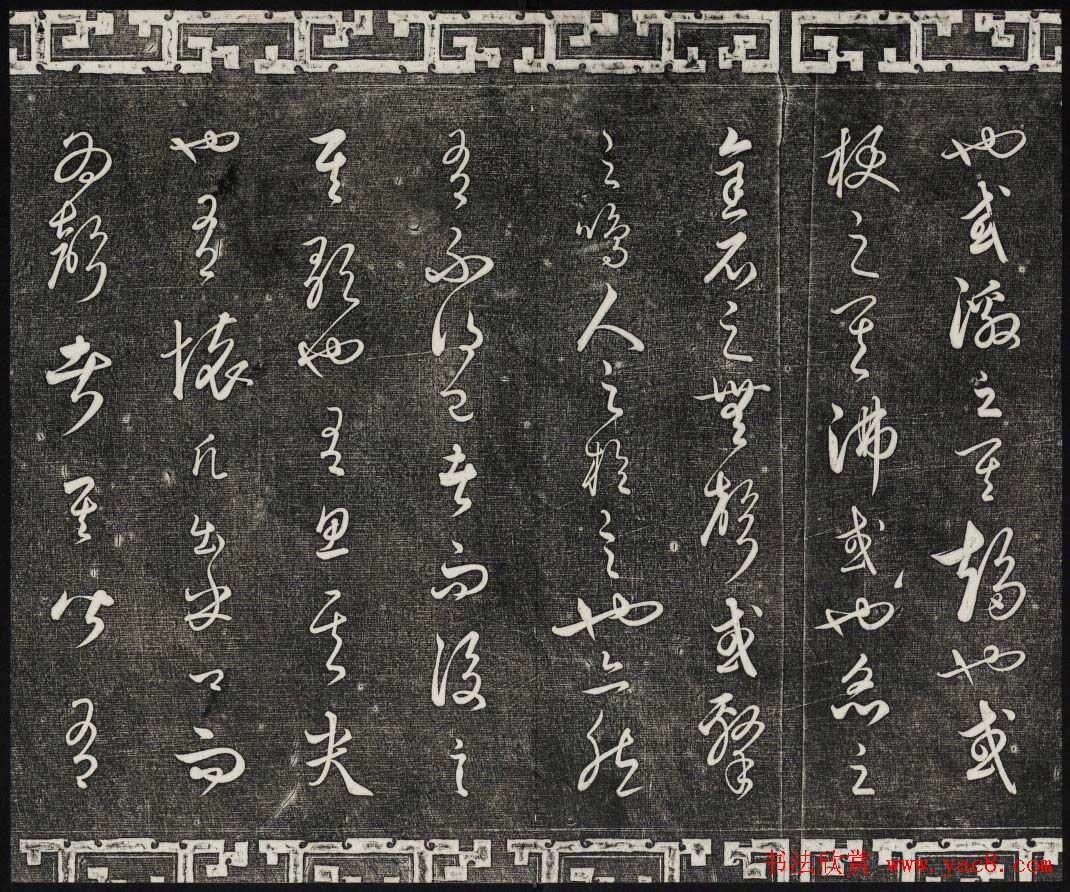 也或激之其趨也或
梗之其沸或也炙之
金石之無聲或擊
之鳴人之於言也亦然
有不得已者而後言
其歌也有思其哭
也有懷凡出乎口而
為聲者其皆有
书法欣赏 www.yac8.com